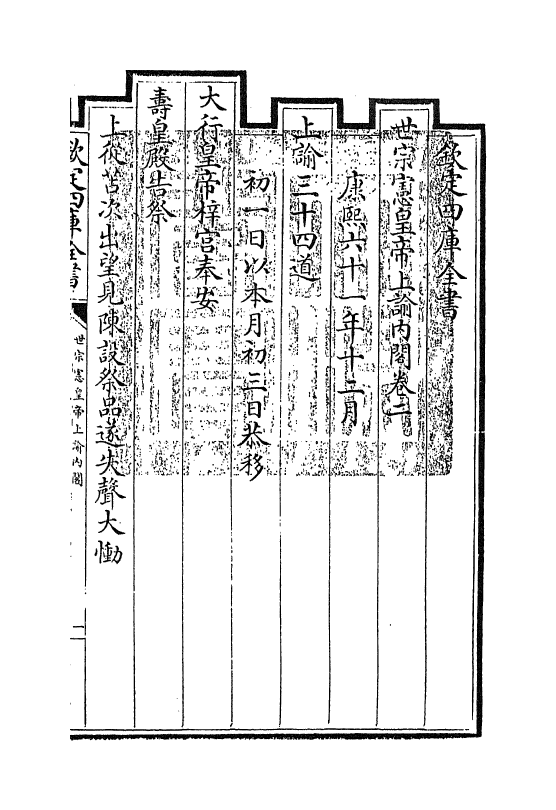 欽定四庫全書
世宗憲皇帝上諭內閣卷二
康熙六十一年十二月
上諭三十四道
初一日以本月初三日恭移
大行皇帝梓宮奉安
壽皇殿告祭
上從苫次出望見陳設祭品遂失聲大慟
欽定四庫全書
世宗憲皇帝上諭內閣